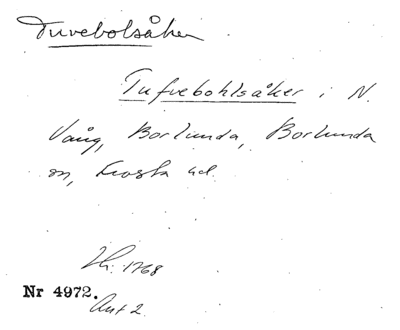 Tuvebolsåker
Tufvebohlsåker i N.
Vång, Borlunda, Borlunda
sn, Frosta hd.
1768
Nr 4972.
Akt 2